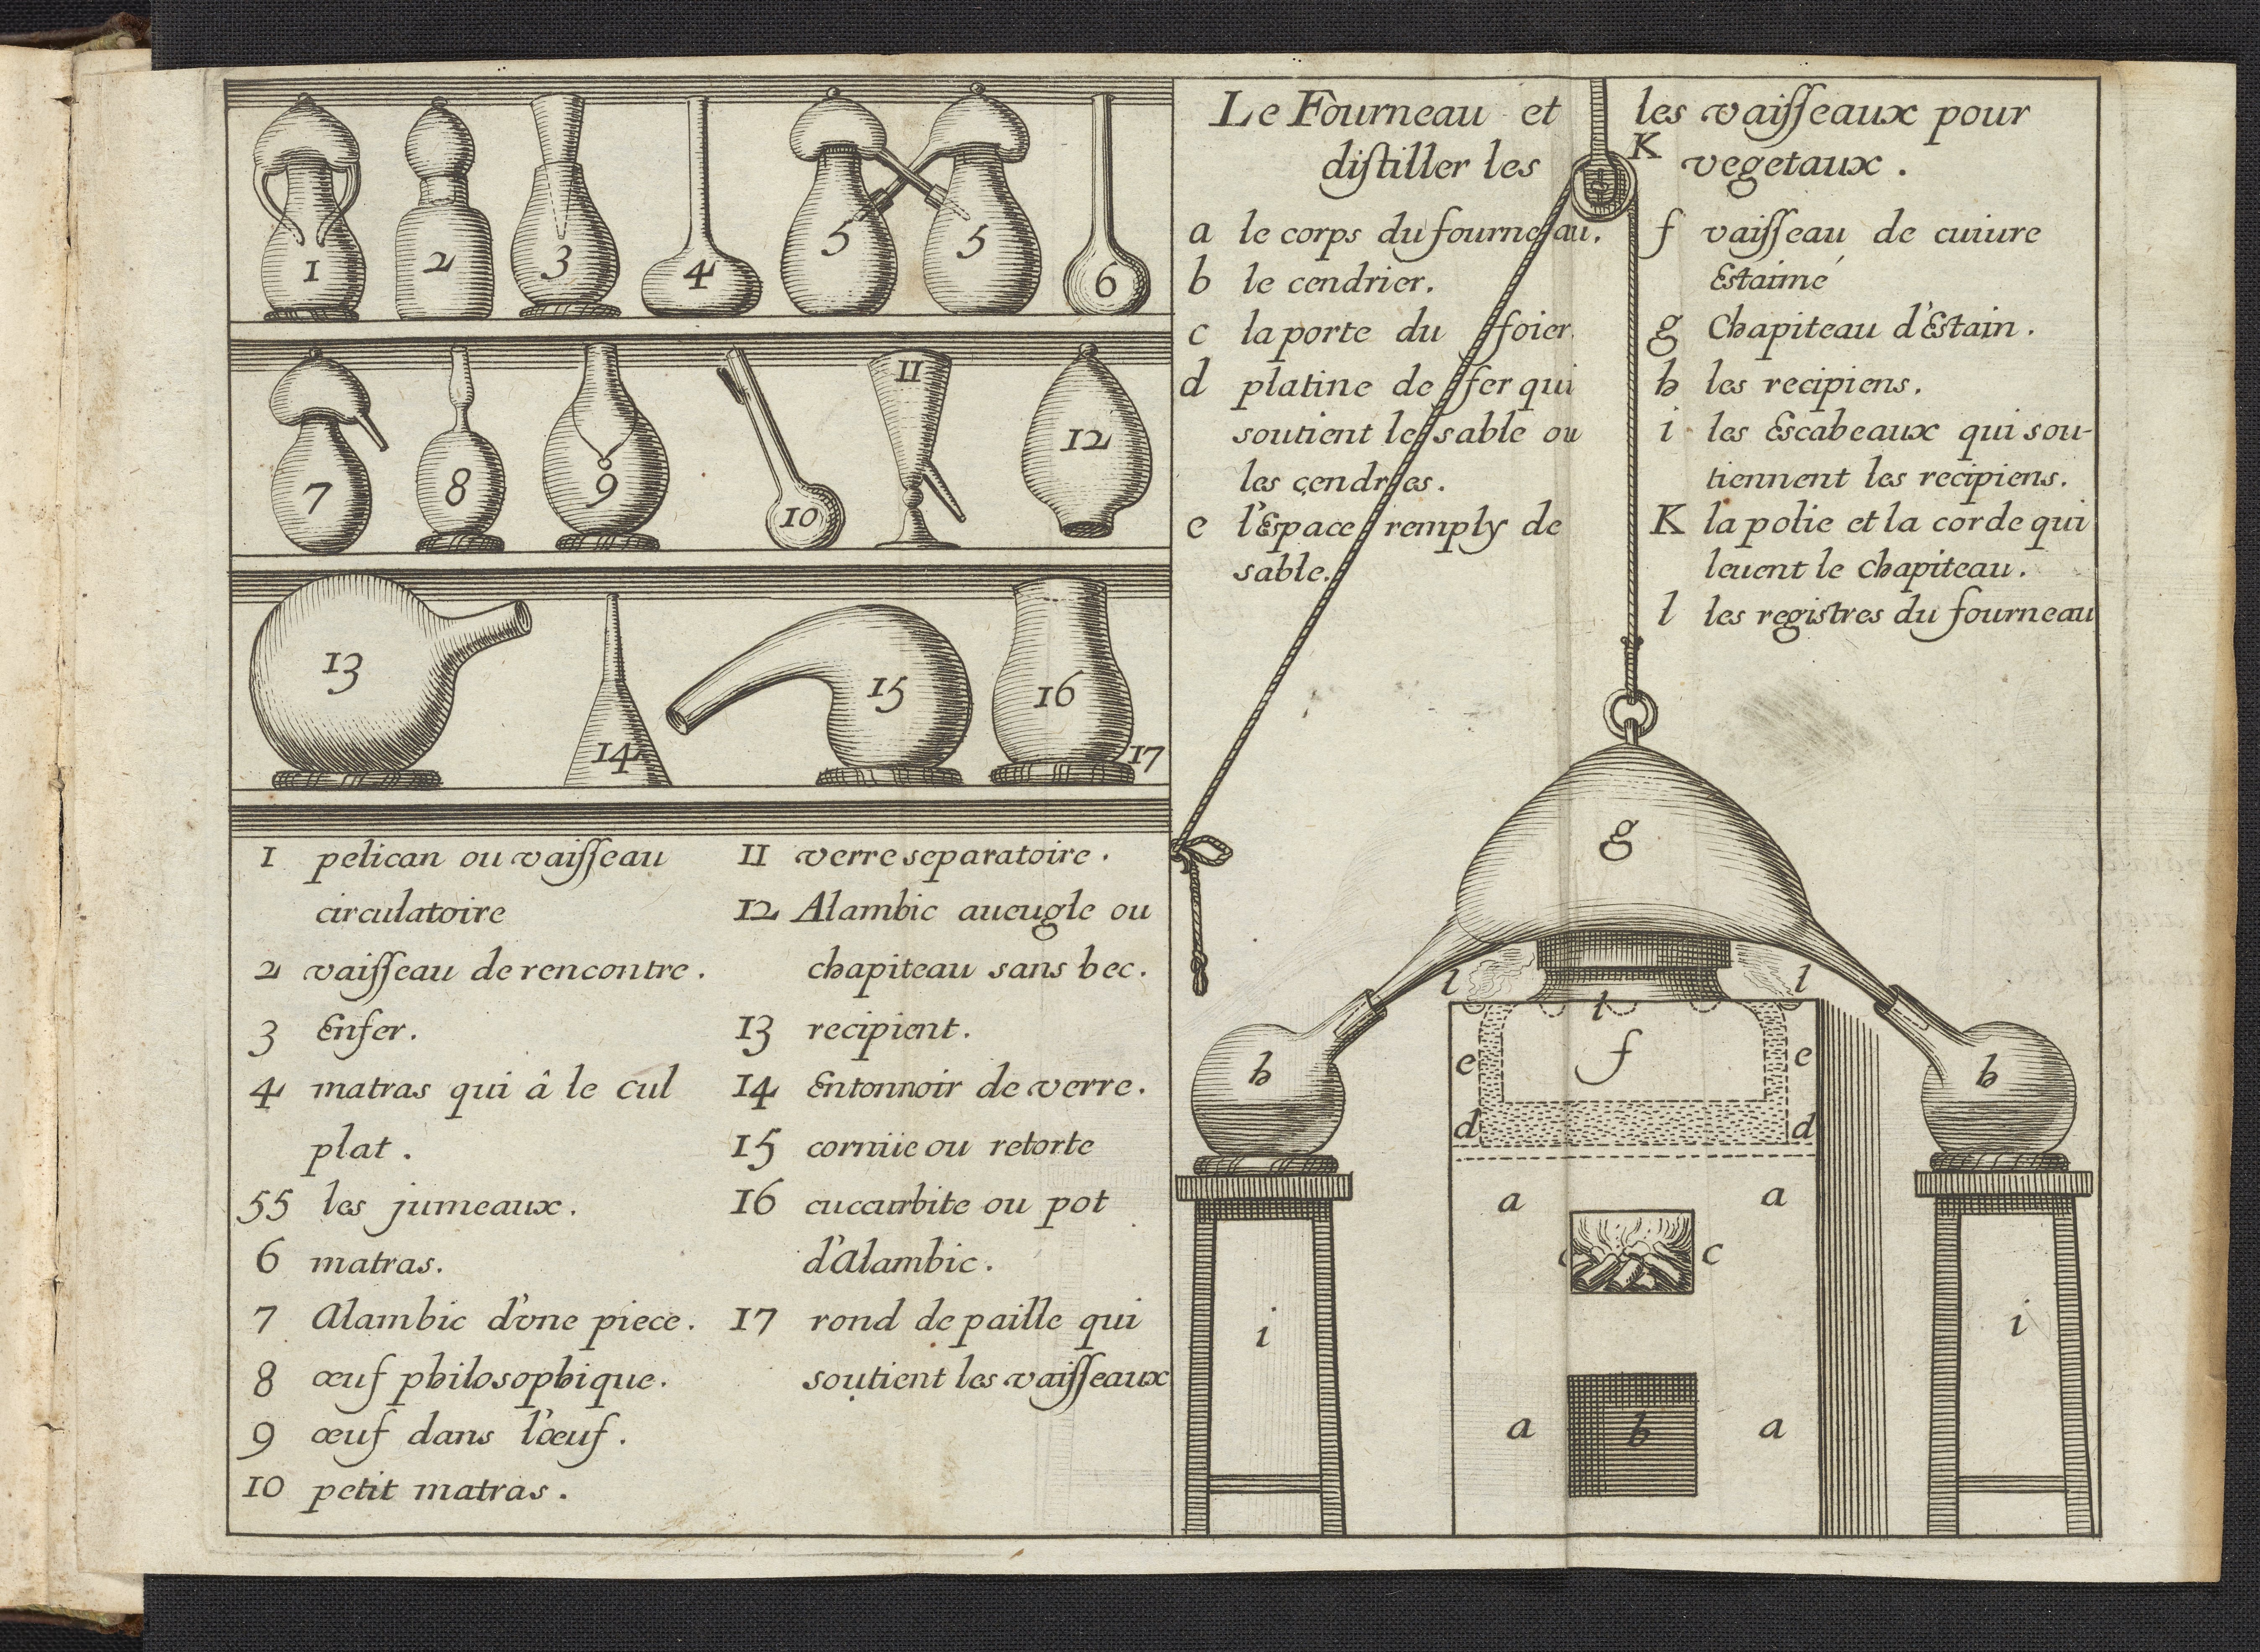 1 2 3 4 5 5 6
7 8 9 10 11 12
13 14 15 16 17
1 pelican ou vaiſſeau
circulatoire
2 vaiſſeau de rencontre.
3 Enfer.
4 matras qui â le cul
plat.
55 les jumeaux.
6 matras.
7 Alambic d'vne piece.
8 œuf philosophique.
9 œuf dans l'œuf.
10 petit matras.
11 verre separatoire.
12 Alambic aueugle ou
chapiteau sans bec.
13 recipient.
14 Entonnoir de verre.
15 cornüe ou retorte
16 cucurbite ou pot
d'Alambic.
17 rond de paille qui
soutient les vaiſſeaux
Le Fourneau et les vaiſſeaux pour
diſtiller les vegetaux.
K
a le corps du fourneau.
b le cendrier.
c la porte du foier.
d platine de fer qui
soutient le sable ou
les cendres.
e l'Espace remply de
sable.
f vaiſſeau de cuiure
Estaimé
g Chapiteau d'Estain.
h les recipiens.
i les Escabeaux qui sou-
tiennent les recipiens.
K la polie et la corde qui
leuent le chapiteau.
l les registres du fourneau
g
l l l
h e f e h
d d
a a
c c
i i
a b a